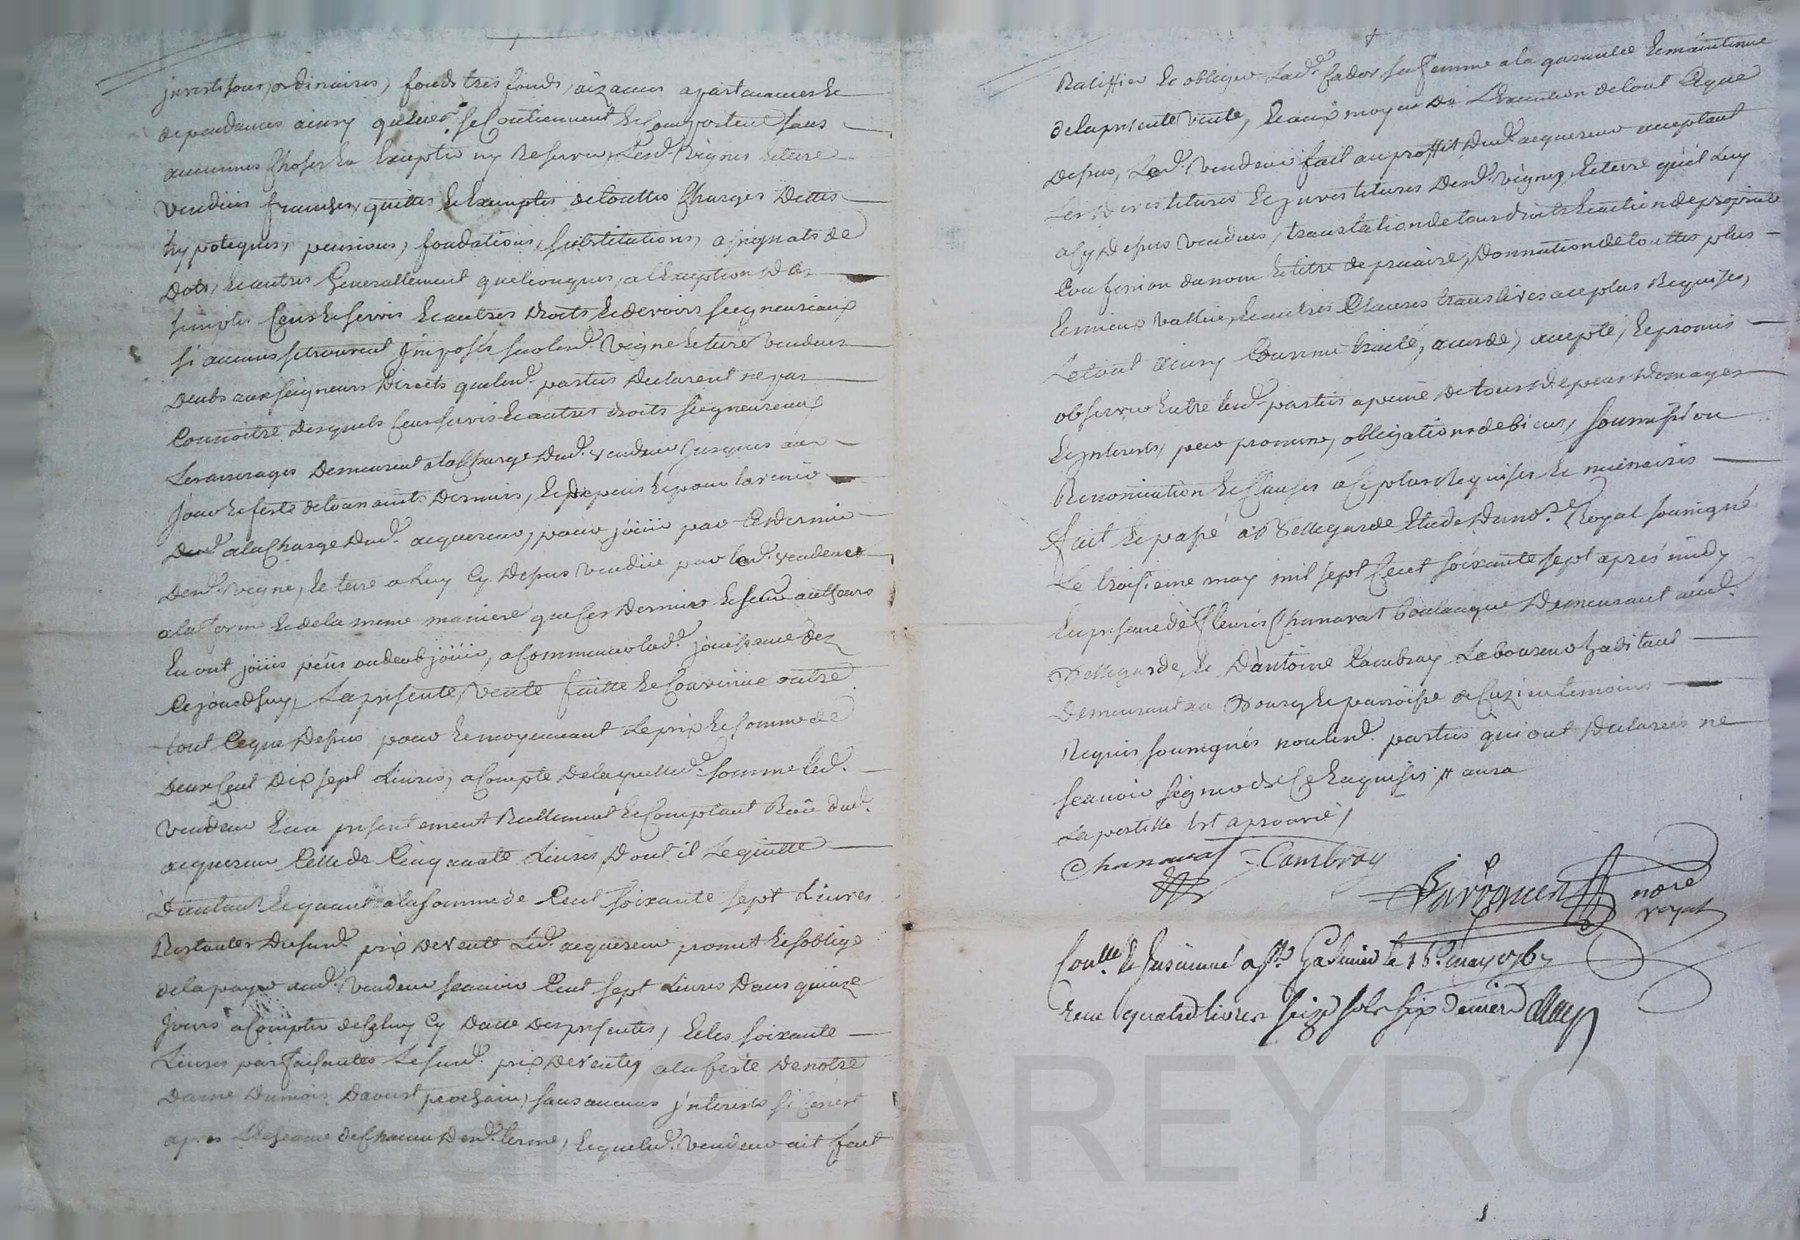 jnrestfour, ordinaires, fonds tres fonds, aizances apartenances &
dependances ainsy quelles se Contiennent & Comportent sans
aucunes Choses En Exepter ny Reserver, Lesd. vignes & terre
vendues franches, quittes & Exemptes de touttes Charges Dettes
hypoteques, pensions, fondations, substitutions, assignats de
Dots, & autres Generallement quelconques, a l'Exeption Des
simples Cens & servis & autres Droits & devoirs seigneuriaux
si aucuns se trouvent jmposés sur lesd. vigne & terre vendues
deubs aux seigneurs Directs que lesd. parties Declarent ne pas
Connoitre Desquels Cens servis & autres droits seigneuriaux
Les arrerages Demeurent a la Charge Dud. vendeur jusques au
jour & feste de toussaints Dernier, & Depuis & pour lavenir
a la Charge Dud. acquereur, pour joüir par Ce Dernier
Desd. vigne, & terre a Luy Cy Depus vendüe par led. vendeur
a la forme & de la meme maniere que Ces Derniers & ses autheurs
En ont joüis peûs ou deub joüir, a Commencer lad. joüissance dez
Cejourdhuy, La presente vente faitte & Convenüe outre
tout Ceque Depus pour & moyennant Le prix & somme de
Deux Cent Dix sept Livres, a Compte De laquelle somme led.
vendeur En a presentement Reellement & Comptant Reçû dud.
acquereur Celle de Cinquante Livres, Dont il Le quitte
D'autant & quant a la somme de Cent soixante sept Livres
Restantes Du susd. prix De vente Led. acquereur promet & soblige
de la payer aud. vendeur scavoir Cent sept Livres Dans quinze
jours a Compter de Celuy Cy Datte Des presentes, & les soixante
Livres parfaisantes Le susd. prix De vente, a la feste De notre
Dame Du mois Daoust prochain, sans aucuns jnterests si Cenest
apres L'Echeance de Chacun Desd. terme, & que led. vendeur ait fait
Ratiffier & obliger Lad. Cador sa femme a la garantie & maintenüe
de la presente vente, & au moyen De L'Execution de tout Ceque
Depus, Led. vendeur fait au proffit Dud. acquereur aceptant
Les Devestitures & jnvestitures Desd. vignes & terre quil Luy
a Cy Depus vendues, translation de tous droits & action de proprieté
Confession du nom & titre de precaire, Donnation de touttes plus
& mieux vallüe, & autres Clauses translatives a Ce plus Requises,
Le tout Ainsy Convenu traité, acordé, accepté, & promis
observer Entre lesd. parties a peine De tous Depens Domages
& jnterests, par promesse, obligations de biens, soumission
Renonciation & Clauses a Ce plus Requises & necessaires
fait & passé a Bellegarde Etude Du nore. Royal soussigné
Le troisieme may mil sept Cent soixante sept apres midy
En presence de fleuris Chanavat boulanger Demeurant aud.
Bellegarde, & D'antoine Cambray Laboureur habitant
Demeurant au Bourg & parroisse de Cuzieu temoins
Requis soussignés non lesd. parties qui ont Declarées ne
scavoir signer de Ce Enquises,
La postille Est aprouvée,
Chanavat Cambray
nore
royal
Conllé & Jnsinué a St Galmier le 16e. may 1767
Recu quatre livres seize sols six deniers
CHAREYRON